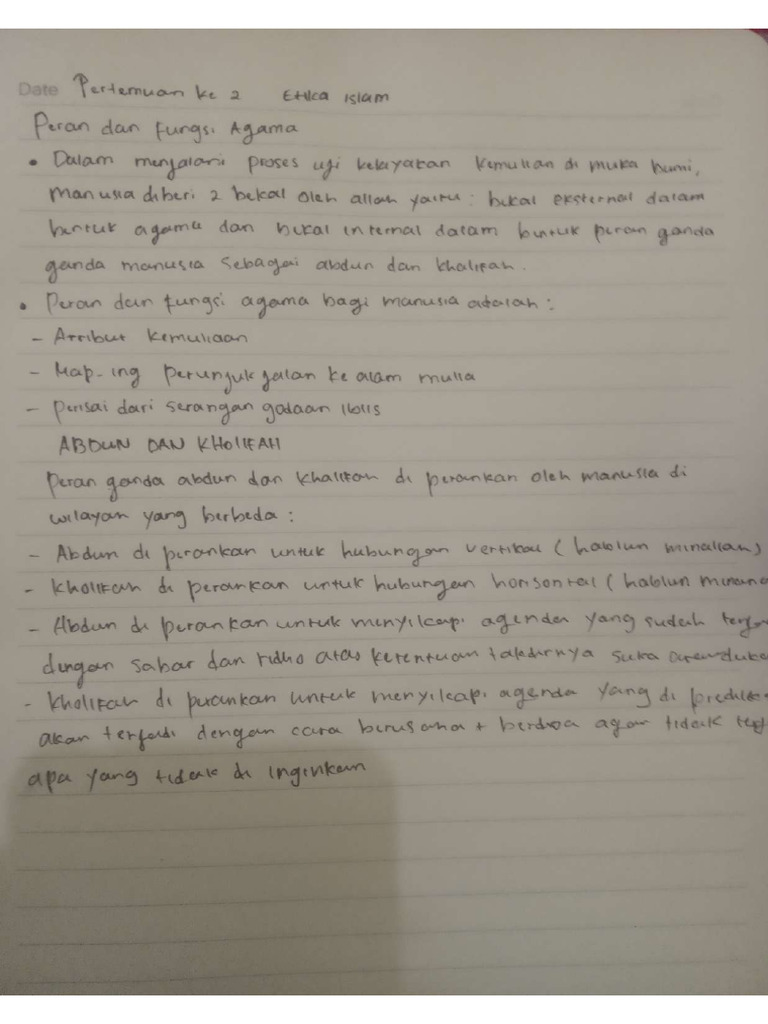 Date Pertemuan ke 2 Etika Islam
Peran dan fungsi Agama
• Dalam menjalani proses uji kelayakan kemuliaan di muka bumi,
manusia diberi 2 bekal oleh allah yaitu: bekal eksternal dalam
bentuk agama dan bekal internal dalam bentuk peran ganda
ganda manusia sebagai abdun dan khalifah.
• Peran dan fungsi agama bagi manusia adalah:
- Atribut kemuliaan
- Map-ing petunjuk jalan ke alam mulia
- Perisai dari serangan godaan Iblis
ABDUN DAN KHOLIFAH
Peran ganda abdun dan khalifah di perankan oleh manusia di
wilayah yang berbeda:
- Abdun di perankan untuk hubungan vertikal (hablun minallah)
- Kholifah di perankan untuk hubungan horisontal (hablun minana
- Abdun di perankan untuk menyikapi agenda yang sudah terja
dengan sabar dan ridho atas ketentuan takdirnya suka
- Kholifah di perankan untuk menyikapi agenda yang di predik
akan terjadi dengan cara berusaha + berdoa agar tidak terj
apa yang tidak di inginkan